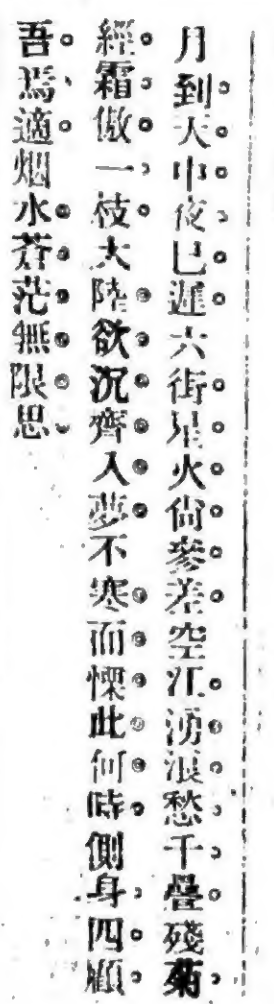 月到天中夜已遲六街星火尙參差空江湧浪愁千疊殘菊
經霜傲一枝大陸欲沉齊入夢不寒而慄此何時側身四顧
吾焉適烟水蒼茫無限思